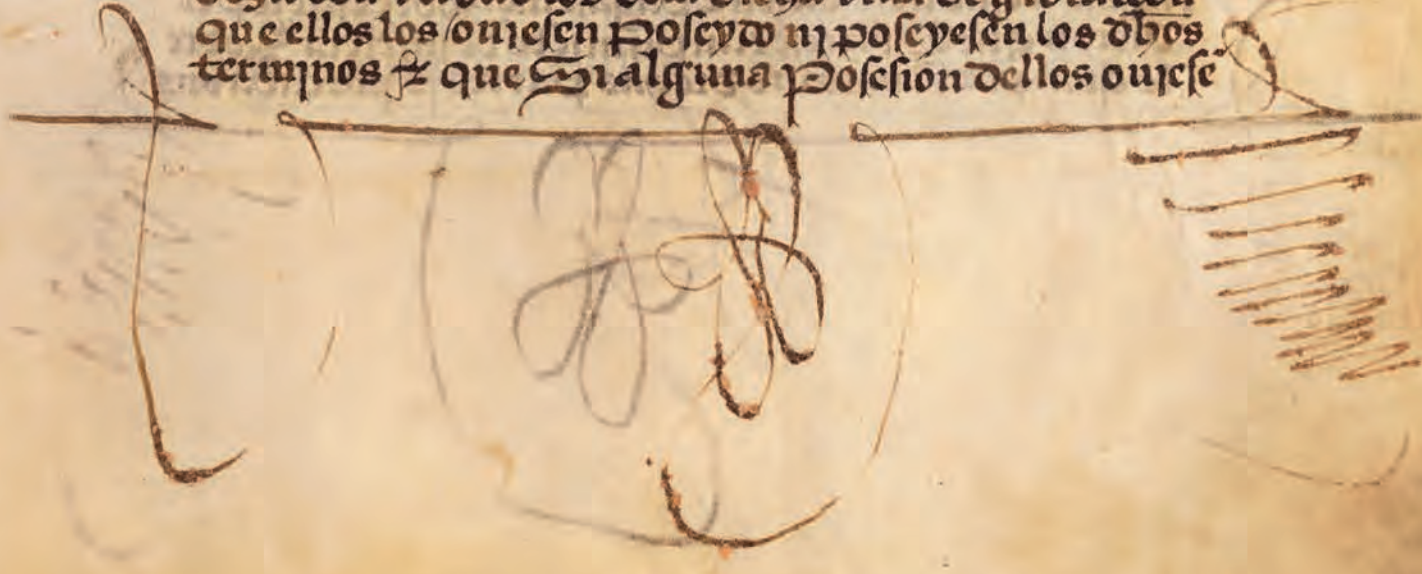 que ellos los ouiesen poseydo nj poseyesen los dhos
termjnos & que Si alguna posesion dellos oujese